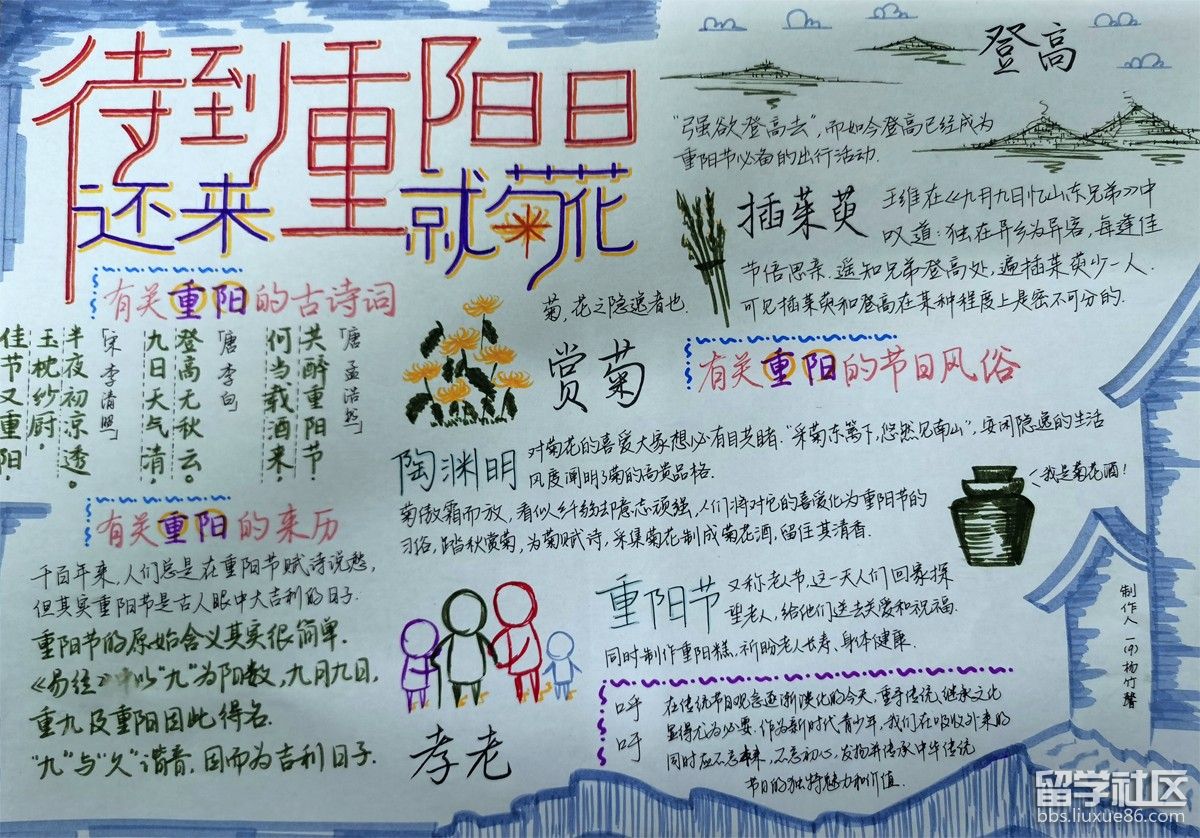 待到重阳日
还来就菊花
登高
“强欲登高去”,而如今登高已经成为
重阳节必备的出行活动.
插茱萸
王维在《九月九日忆山东兄弟》中
叹道:独在异乡为异客,每逢佳
节倍思亲.遥知兄弟登高处,遍插茱萸少一人.
可见插茱萸和登高在某种程度上是密不可分的.
有关重阳的古诗词
「唐 孟浩然」
共醉重阳节。
何当载酒来
「唐 李白」
登高无秋云。
九日天气清
「宋 李清照」
半夜初凉透。
玉枕纱厨.
佳节又重阳
菊,花之隐逸者也.
赏菊
有关重阳的节日风俗
陶渊明
对菊花的喜爱大家想必有目共睹.“采菊东篱下,悠然见南山”,安闲隐逸的生活
风度阐明了菊的高贵品格.
菊傲霜而放,看似纤弱却意志顽强,人们将对它的喜爱化为重阳节的
习俗,踏秋赏菊,为菊赋诗,采集菊花制成菊花酒,留住其清香.
我是菊花酒!
有关重阳的来历
千百年来,人们总是在重阳节赋诗说愁,
但其实重阳节是古人眼中大吉利的日子.
重阳节的原始含义其实很简单.
《易经》中以“九”为阳数,九月九日,
重九及重阳因此得名.
“九”与“久”谐音,因而为吉利日子.
孝老
重阳节
又称老节,这一天人们回家探
望老人,给他们送去关爱和祝福.
同时制作重阳糕,祈盼老人长寿、身体健康.
呼吁
在传统节日观念逐渐淡化的今天,重寻传统、继承文化
显得尤为必要.作为新时代青少年,我们在吸收外来的
同时应不忘本来,不忘初心,发扬并传承中华传统
节日的独特魅力和价值.
制作人 一(9) 杨竹馨
留学社区
bbs.liuxue86.com